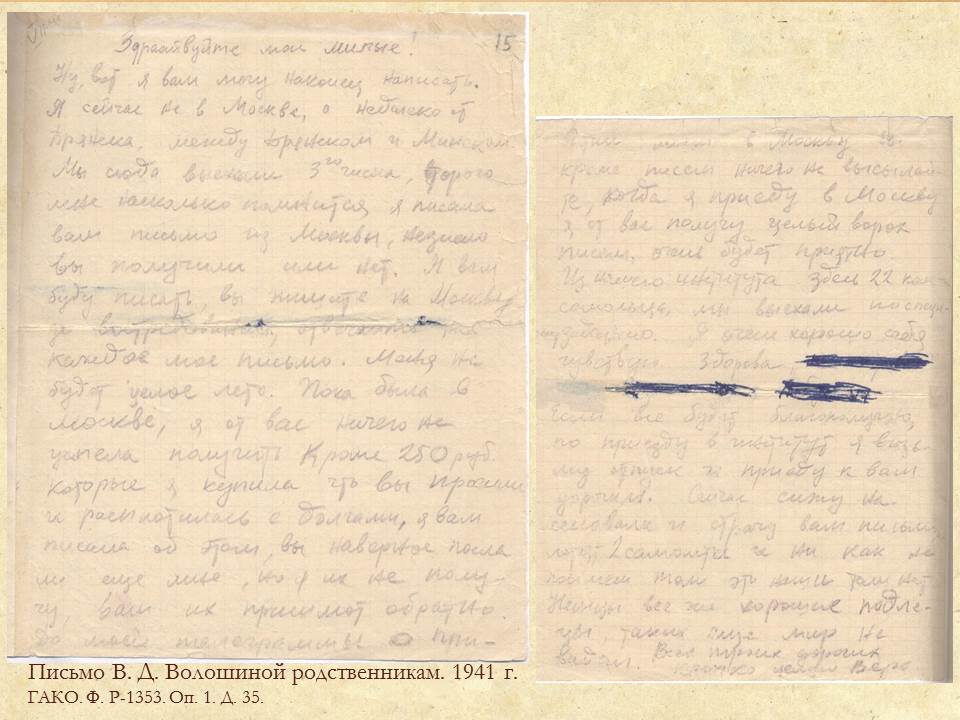 15
Здравствуйте мои милые!
Ну, вот я вам могу наконец написать.
Я сейчас не в Москве, а недалеко от
Брянска, между Брянском и Минском.
Мы сюда выехали 3го числа, второго
мне насколько помнится я писала
вам письмо из Москвы, незнаю
вы получили или нет. Я вам
буду писать, вы пишите на Москву
до востребования,
каждое мое письмо. Меня не
будет целое лето. Пока была в
Москве, я от вас ничего не
успела получить кроме 250 руб.
которые я купила что вы просили
и расплатилась с долгами, я вам
писала об этом, вы наверное посла
ли еще мне, но я их не полу-
чу, вам их пришлют обратно.
До моей телеграммы о при-
в Москву
кроме писем ничего не высылай-
те, когда я приеду в Москву
я от вас получу целый ворох
писем, очень будет приятно.
Из нашего института здесь 22 ком-
сомольца, мы выехали на спец.
Я очень хорошо себя
чувствую. Здорова,
Если все будет благополучно,
по приезду в институт я возь-
му отпуск и приеду к вам
дорогие. Сейчас сижу на
сеновале и строчу вам письмо,
летят 2 самолета и ни как не
поймем то ли это наши то ли нет
Немцы все же хорошие подле-
цы, таких еще мир не
видал. Всех троих дорогих
крепко целую Вера
Письмо В. Д. Волошиной родственникам. 1941 г.
ГАКО. Ф. Р-1353. Оп. 1. Д. 35.